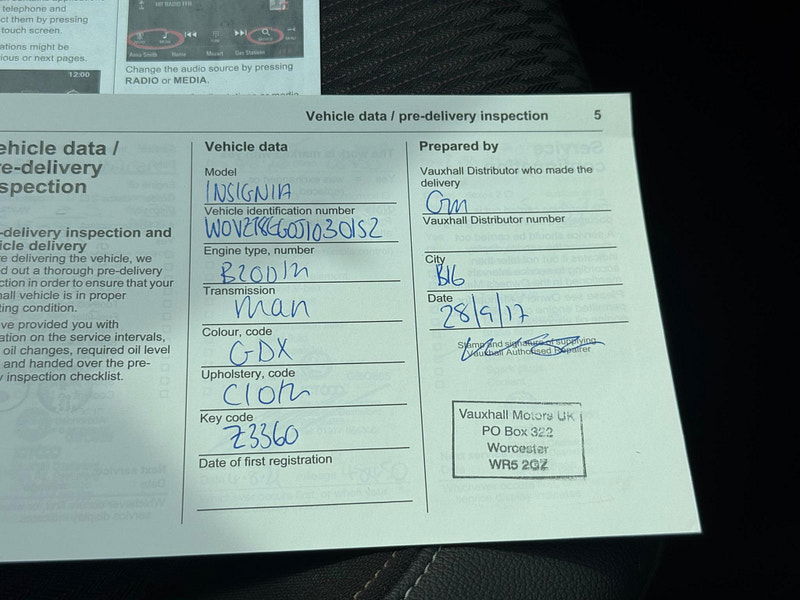 telephone and
ct them by pressing
touch screen.
ations might be
ious or next pages.
12:00
HIT RADIO FFH
Anna Smith Home Mozart Gas Stations
Change the audio source by pressing
RADIO or MEDIA.
Vehicle data / pre-delivery inspection 5
ehicle data /
re-delivery
spection
-delivery inspection and
icle delivery
re delivering the vehicle, we
d out a thorough pre-delivery
ction in order to ensure that your
hall vehicle is in proper
ting condition.
ve provided you with
ation on the service intervals,
oil changes, required oil level
and handed over the pre-
y inspection checklist.
Vehicle data
Model
INSIGNIA
Vehicle identification number
Engine type, number
Transmission
man
Colour, code
GDX
Upholstery, code
Cloth
Key code
Z3360
Date of first registration
Prepared by
Vauxhall Distributor who made the
delivery
Gm
Vauxhall Distributor number
City
B16
Date
28/9/17
Stamp and signature of supplying
Vauxhall Authorised Repairer
Vauxhall Motors UK
PO Box 322
Worcester
WR5 2GZ